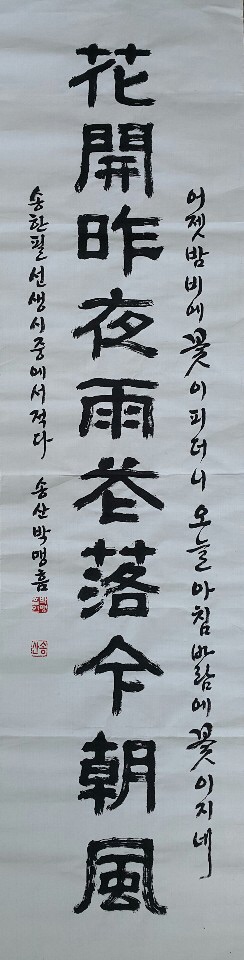 어젯밤 비에 꽃이 피더니 오늘 아침 바람에 꽃이 지네
花開昨夜雨花落今朝風
송한필 선생 시 중에서 적다 송산 박맹흠